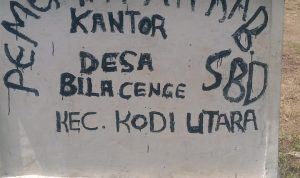 PEM
AB.
KANTOR
DESA
BILA CENGE
SBD
KEC. KODI UTARA